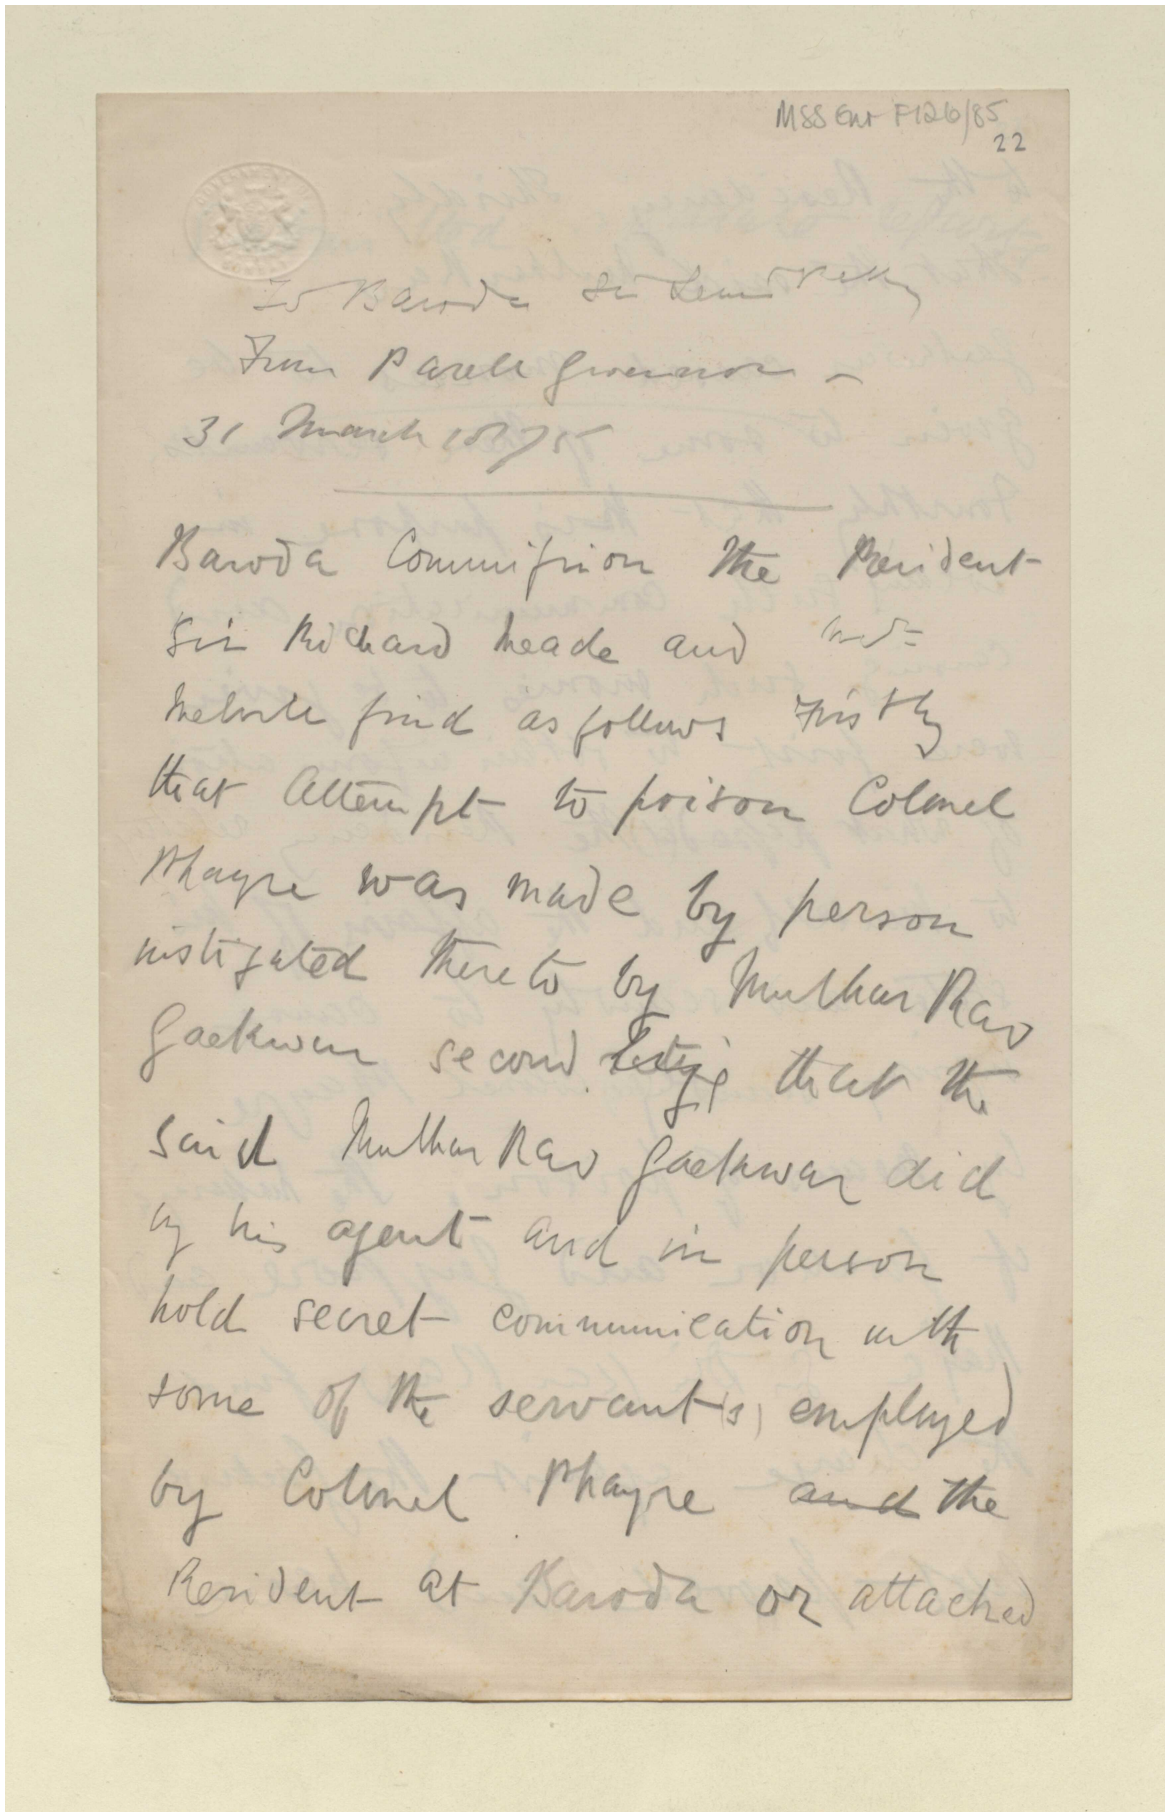 MSS Eur F126/85
22
To Baroda Sir Lewis Pelly
From Parell Governor -
31 March 1875
Baroda Commission the President
Sir Richard Meade and
Melvill find as follows Firstly
that attempt to poison Colonel
Phayre was made by person
instigated thereto by Mulhar Rao
Gaekwar second that the
said Mulhar Rao Gaekwar did
by his agent and in person
hold secret communication with
some of the servant(s) employed
by Colonel Phayre and the
Resident at Baroda or attached